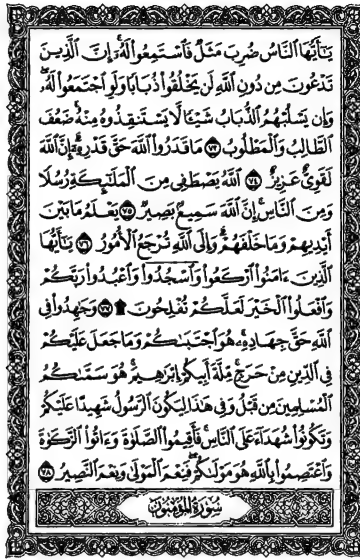 يَٰٓأَيُّهَا ٱلنَّاسُ ضُرِبَ مَثَلٌ فَٱسْتَمِعُوا۟ لَهُۥٓ ۚ إِنَّ ٱلَّذِينَ
تَدْعُونَ مِن دُونِ ٱللَّهِ لَن يَخْلُقُوا۟ ذُبَابًا وَلَوِ ٱجْتَمَعُوا۟ لَهُۥ ۖ
وَإِن يَسْلُبْهُمُ ٱلذُّبَابُ شَيْـًٔا لَّا يَسْتَنقِذُوهُ مِنْهُ ۚ ضَعُفَ
ٱلطَّالِبُ وَٱلْمَطْلُوبُ ٧٣ مَا قَدَرُوا۟ ٱللَّهَ حَقَّ قَدْرِهِۦٓ ۗ إِنَّ ٱللَّهَ
لَقَوِىٌّ عَزِيزٌ ٧٤ ٱللَّهُ يَصْطَفِى مِنَ ٱلْمَلَٰٓئِكَةِ رُسُلًا
وَمِنَ ٱلنَّاسِ ۚ إِنَّ ٱللَّهَ سَمِيعٌۢ بَصِيرٌ ٧٥ يَعْلَمُ مَا بَيْنَ
أَيْدِيهِمْ وَمَا خَلْفَهُمْ ۗ وَإِلَى ٱللَّهِ تُرْجَعُ ٱلْأُمُورُ ٧٦ يَٰٓأَيُّهَا
ٱلَّذِينَ ءَامَنُوا۟ ٱرْكَعُوا۟ وَٱسْجُدُوا۟ وَٱعْبُدُوا۟ رَبَّكُمْ
وَٱفْعَلُوا۟ ٱلْخَيْرَ لَعَلَّكُمْ تُفْلِحُونَ ۩ ٧٧ وَجَٰهِدُوا۟ فِى
ٱللَّهِ حَقَّ جِهَادِهِۦ ۚ هُوَ ٱجْتَبَىٰكُمْ وَمَا جَعَلَ عَلَيْكُمْ
فِى ٱلدِّينِ مِنْ حَرَجٍ ۚ مِّلَّةَ أَبِيكُمْ إِبْرَٰهِيمَ ۚ هُوَ سَمَّىٰكُمُ
ٱلْمُسْلِمِينَ مِن قَبْلُ وَفِى هَٰذَا لِيَكُونَ ٱلرَّسُولُ شَهِيدًا عَلَيْكُمْ
وَتَكُونُوا۟ شُهَدَآءَ عَلَى ٱلنَّاسِ ۚ فَأَقِيمُوا۟ ٱلصَّلَوٰةَ وَءَاتُوا۟ ٱلزَّكَوٰةَ
وَٱعْتَصِمُوا۟ بِٱللَّهِ هُوَ مَوْلَىٰكُمْ ۖ فَنِعْمَ ٱلْمَوْلَىٰ وَنِعْمَ ٱلنَّصِيرُ ٧٨
سُورَةُ المُؤْمِنُونَ